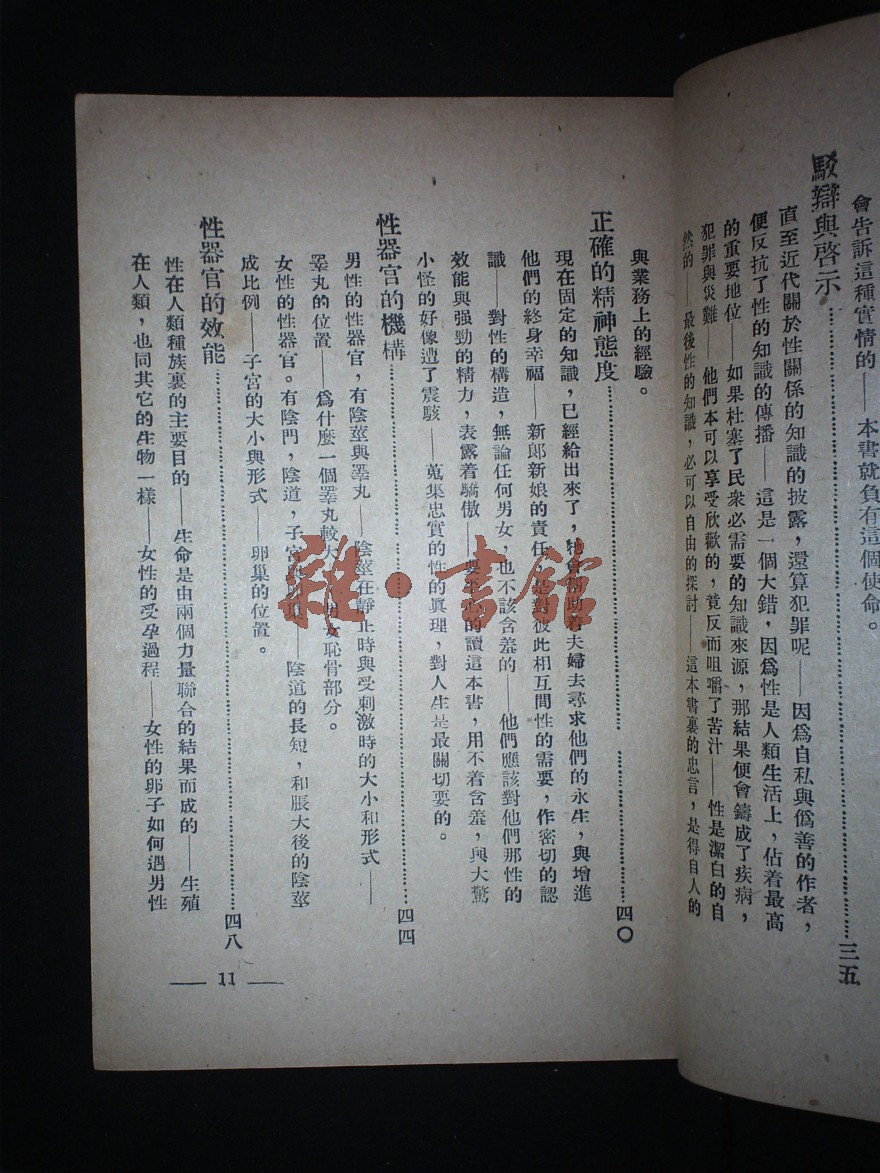 會告訴這種實情的——本書就負有這個使命。
駁辯與啓示……三五
直至近代關於性關係的知識的披露，還算犯罪呢——因爲自私與僞善的作者，
便反抗了性的知識的傳播——這是一個大錯，因爲性是人類生活上，佔着最高
的重要地位——如果杜塞了民衆必需要的知識來源，那結果便會鑄成了疾病，
犯罪與災難——他們本可以享受欣歡的，竟反而咀嚼了苦汁——性是潔白的自
然的——最後性的知識，必可以自由的探討——這本書裏的忠言，是得自人的
與業務上的經驗。
正確的精神態度……四〇
現在固定的知識，已經給出來了，牠會幫助着夫婦去尋求他們的永生，與增進
他們的終身幸福——新郎新娘的責任，是對彼此相互間性的需要，作密切的認
識——對性的構造，無論任何男女，也不該含羞的——他們應該對他們那性的
效能與强勁的精力，表露着驕傲——要的讀這本書，用不着含羞，與大驚
小怪的好像遭了震駭——蒐集忠實的性的眞理，對人生是最關切要的。
性器官的機構……四四
男性的性器官，有陰莖與睪丸——陰莖在靜止時與受刺激時的大小和形式——
睪丸的位置——爲什麼一個睪丸較大——男女恥骨部分。
女性的性器官。有陰門，陰道，子宮——陰道的長短，和脹大後的陰莖
成比例——子宮的大小與形式——卵巢的位置。
性器官的效能……四八
性在人類種族裏的主要目的——生命是由兩個力量聯合的結果而成的——生殖
在人類，也同其它的生物一樣——女性的受孕過程——女性的卵子如何遇男性
—— 11 ——
雜·書館